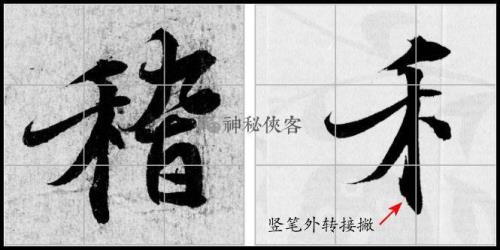 稽 禾
神秘俠客
竖笔外转接撇